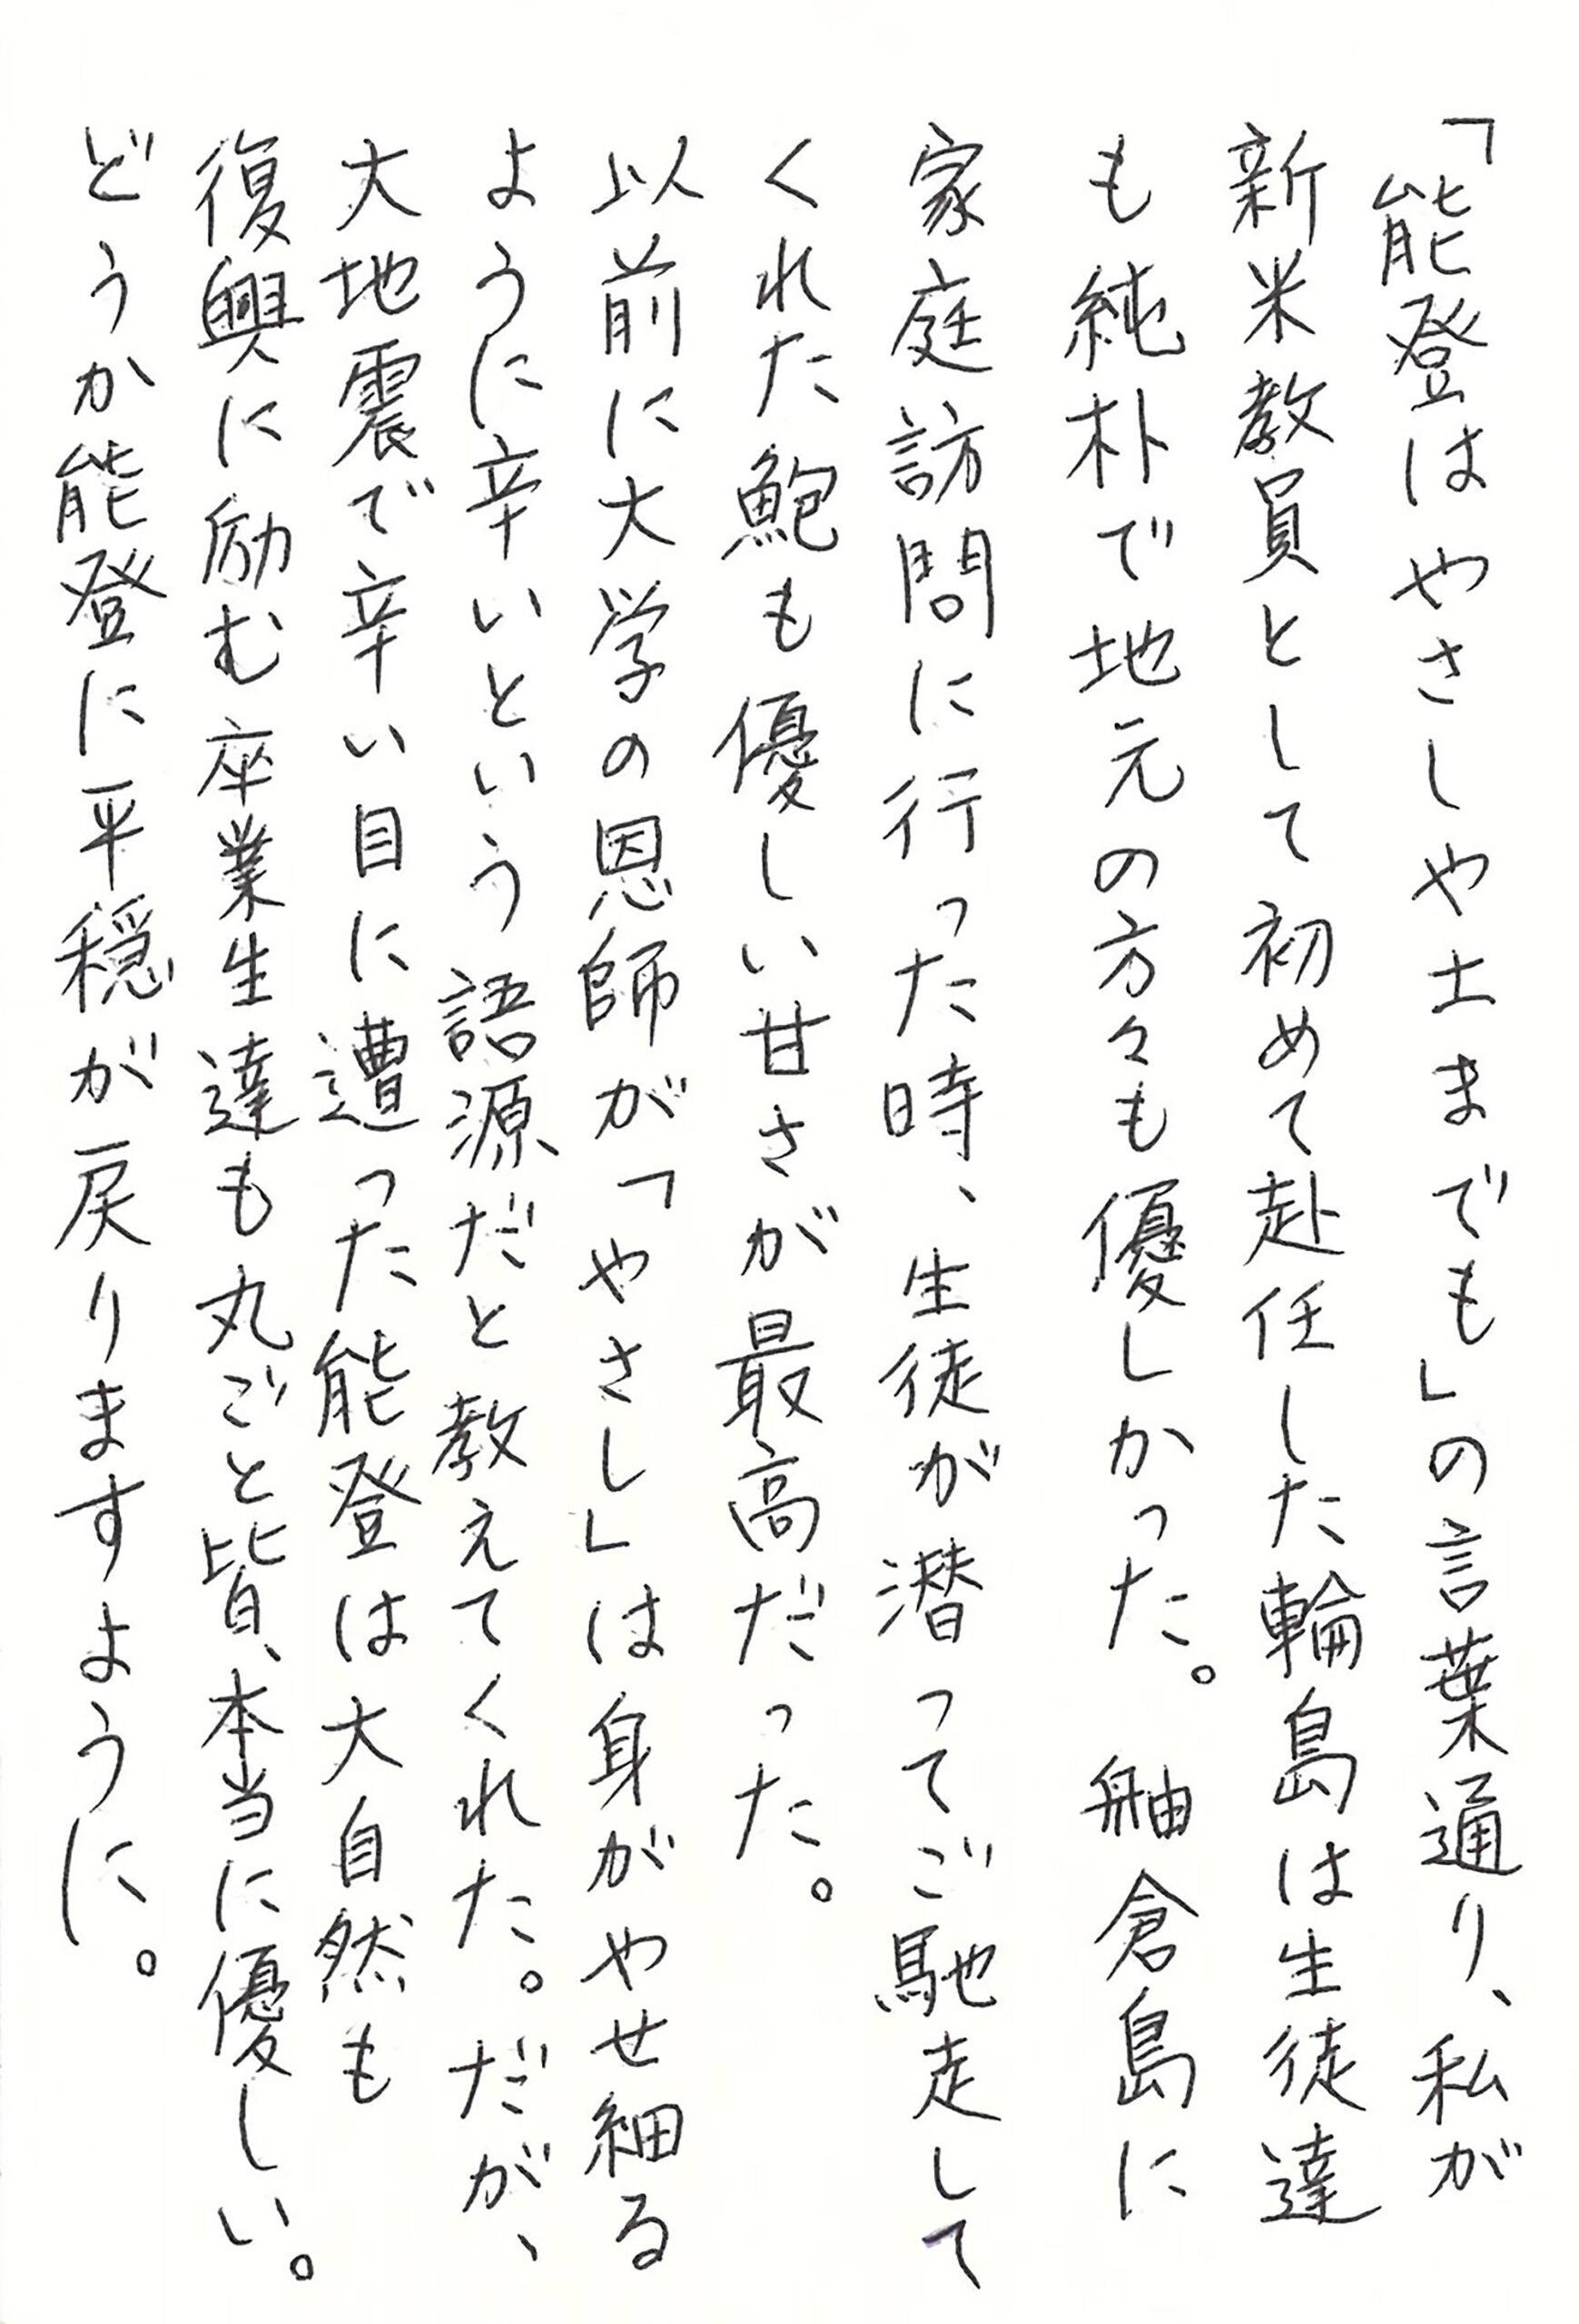 「能登はやさしや土までも」の言葉通り、私が
新米教員として初めて赴任した輪島は生徒達
も純朴で地元の方々も優しかった。舳倉島に
家庭訪問に行った時、生徒が潜ってご馳走して
くれた鮑も優しい甘さが最高だった。
以前に大学の恩師が「やさし」は身がやせ細る
ように辛いという語源だと教えてくれた。だが、
大地震で辛い目に遭った能登は大自然も
復興に励む卒業生達も丸ごと皆、本当に優しい。
どうか能登に平穏が戻りますように。